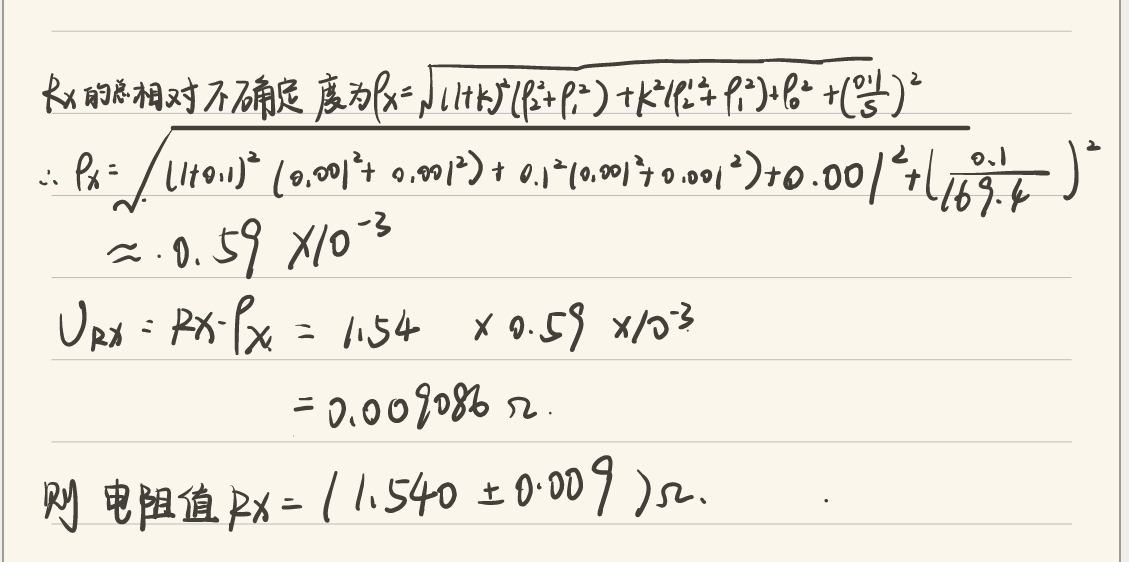 Rx的总相对不确定度为ρx=√(1+k)²(ρ₂²+ρ₁²)+k²(ρ₂'²+ρ₁'²)+ρ₀²+(0.1/S)²
∴ ρx=√(1+0.1)²(0.001²+0.001²)+0.1²(0.001²+0.001²)+0.001²+(0.1/169.4)²
≈0.59×10⁻³
U_RX=RX·ρx=1.54 ×0.59 ×10⁻³
=0.009086Ω.
则电阻值RX=(1.540±0.009)Ω.